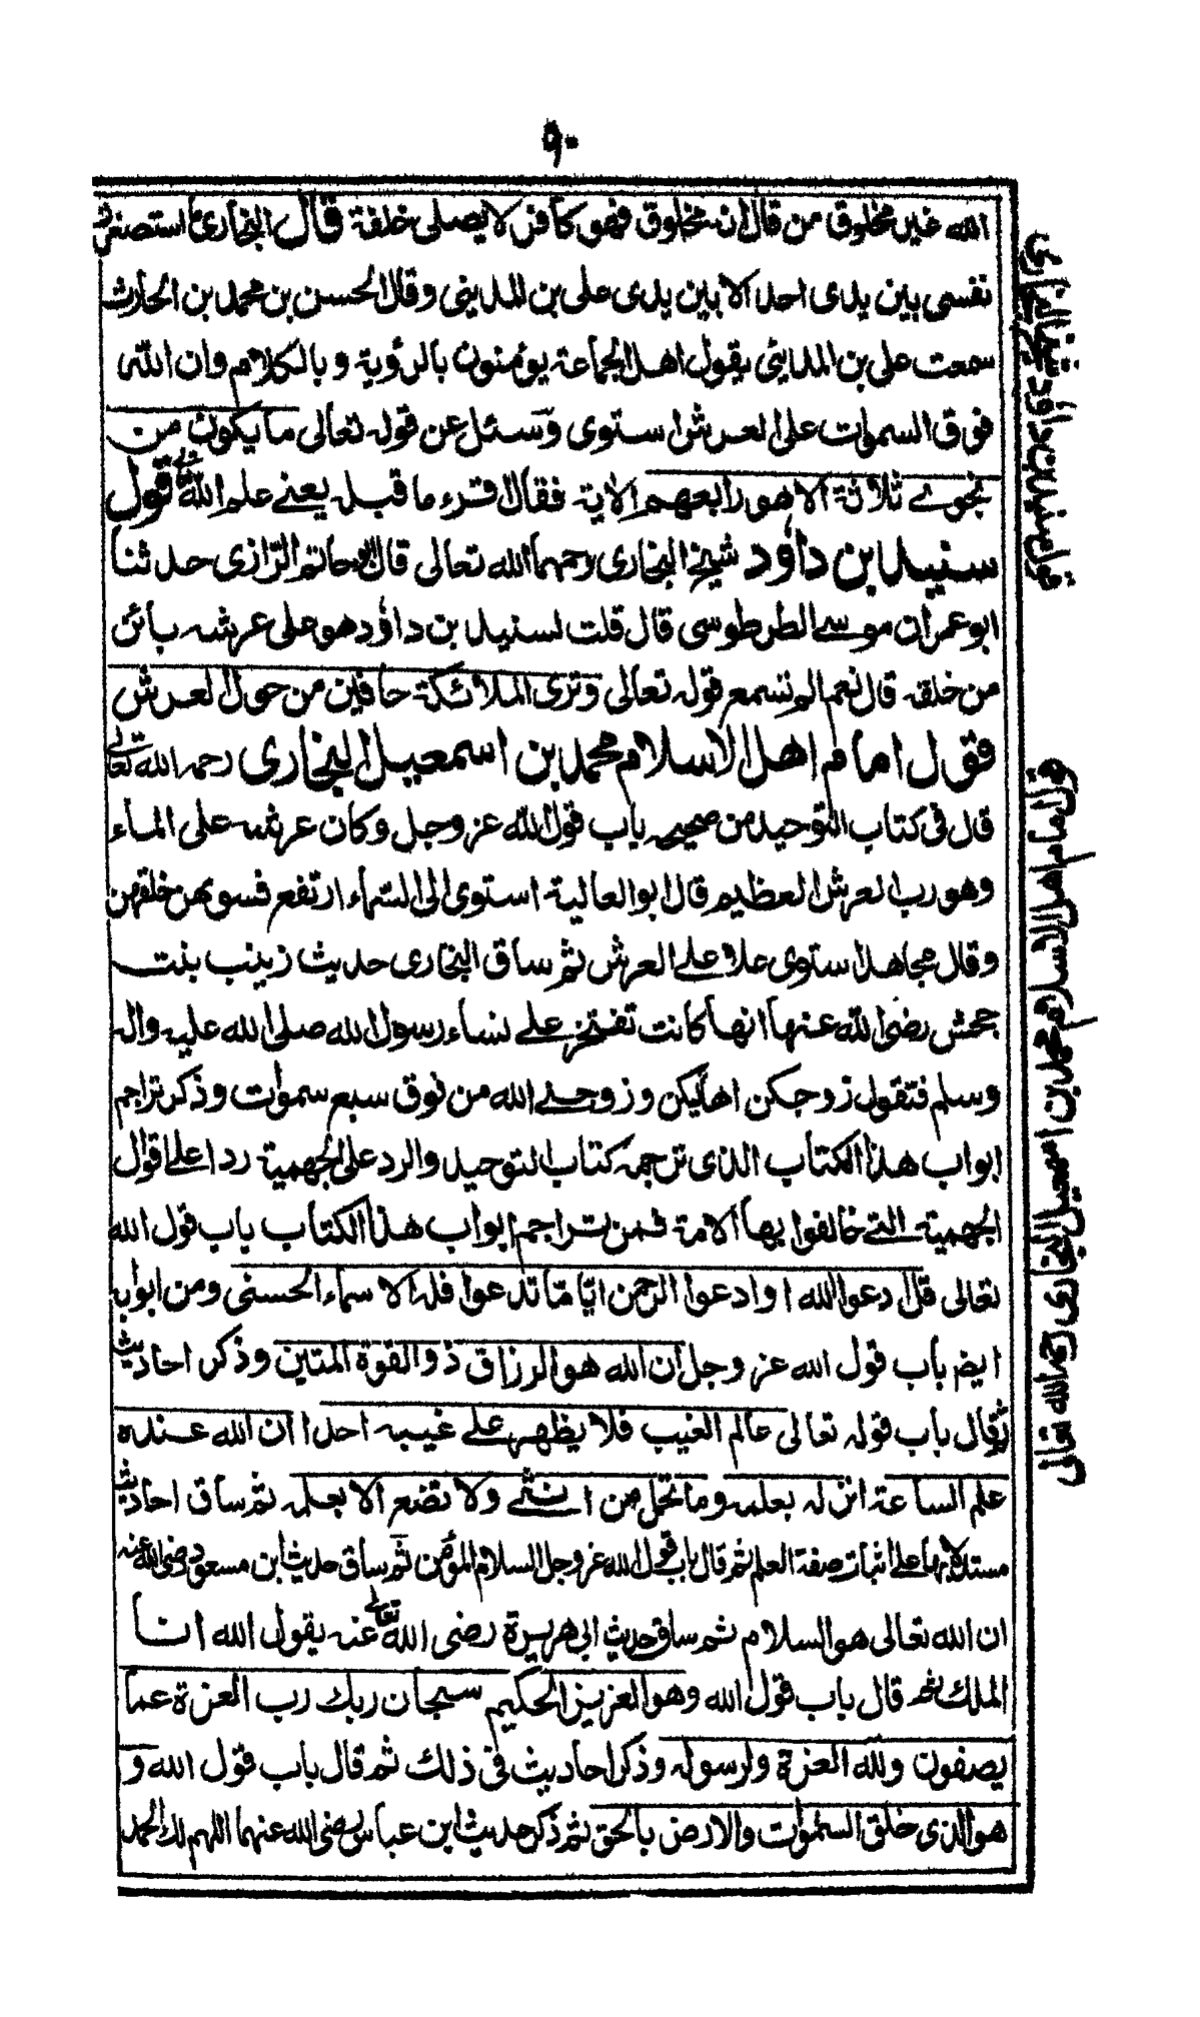 ٩٠
الله غير مخلوق من قال انه مخلوق فهو كافر لا يصلى خلفة قال البخارى ما استصغرت
نفسى بين يدى احد الا بين يدى على بن المدينى وقال الحسن بن محمد بن الحارث
سمعت على بن المدينى يقول اهل الجماعة يؤمنون بالرؤية و بالكلام وان الله
فوق السموات على العرش استوى وسئل عن قوله تعالى ما يكون من
نجوے ثلاثة الا هو رابعهم الاية فقال اقرء ما قبله يعنے علم الله تعالے قول
سنيد ابن داود شيخ البخارى رحمهما الله تعالى قال ابو حاتم الرازى حدثنا
ابو عمران موسے الطرطوسى قال قلت لسنيد بن داود هو على عرشه بائن
من خلقه قال نعم الم تسمع قوله تعالى وترى الملائكة حافين من حول العرش
فقول امام اهل الاسلام محمد بن اسمعيل البخارى رحمه الله تعالے
قال فى كتاب التوحيد من صحيحه باب قول الله عز وجل وكان عرشه على الماء
وهو رب العرش العظيم قال ابو العالية استوى الى السماء ارتفع فسوهن خلقهن
وقال مجاهد استوى علا علے العرش ثم ساق البخارى حديث زينب بنت
جحش رضى الله عنها انها كانت تفتخر علے نساء رسول الله صلى الله عليه واله
وسلم فتقول زوجكن اهاليكن و زوجنے الله من فوق سبع سموات وذكر تراجم
ابواب هذا الكتاب الذى ترجمه كتاب التوحيد والرد على الجهمية ردا علے اقوال
الجهمية التے خالفوا بها الامة فمن تراجم ابواب هذا الكتاب باب قول الله
تعالى قل ادعوا الله اوادعوا الرحمن ايّا مّا تدعوا فله الاسماء الحسنى ومن ابوابه
ايضا باب قول الله عز وجل ان الله هو الرزاق ذو القوة المتين وذكر احاديث
ثم قال باب قوله تعالى عالم الغيب فلا يظهر علے غيبه احدا ان الله عنده
علم الساعة انزله بعلمه وما تحمل من انثے ولا تضع الا بعلمه ثم ساق احاديث
مستدلا بها على اثبات صفة العلم ثم قال باب قول الله عز وجل السلام المؤمن ثم ساق حديث ابن مسعود رضى الله عنه
ان الله تعالى هو السلام ثم ساق حديث ابي هريرة رضى الله تعالے عنه يقول الله انا
الملك ثم قال باب قول الله وهو العزيز الحكيم سبحان ربك رب العزة عما
يصفون ولله العزة ولرسوله وذكر احاديث فى ذلك ثم قال باب قول الله و
هو الذى خلق السموات والارض بالحق ثم ذكر حديث ابن عباس رضى الله عنهما اللهم لك الحمد
قول سنيد بن داود شيخ البخارى
قول امام اهل الاسلام محمد بن اسمعيل البخارى رحمه الله تعالى